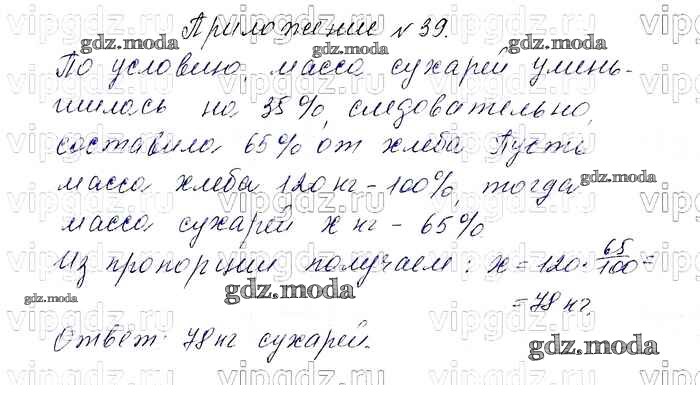 Приложение № 39.
По условию, масса сухарей умень-
шилась на 35%, следовательно,
составила 65% от хлеба. Пусть
масса хлеба 120 кг - 100%, тогда
масса сухарей x кг - 65%
Из пропорции получаем: x = 120 · 65/100 =
= 78 кг.
Ответ: 78 кг сухарей.
gdz.moda
gdz.moda
gdz.moda
gdz.moda
gdz.moda
gdz.moda
gdz.moda
gdz.moda
vipgdz.ru